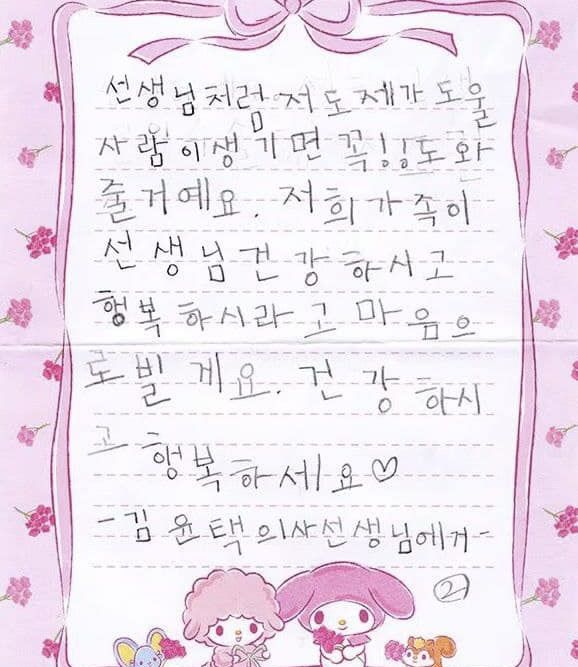 선생님처럼 저도 제가 도울
사람이 생기면 꼭!! 도와
줄거예요. 저희가족이
선생님 건강하시고
행복하시라고 마음으
로 빌게요. 건강하시
고 행복하세요♡
-김윤택 의사선생님에게-
②